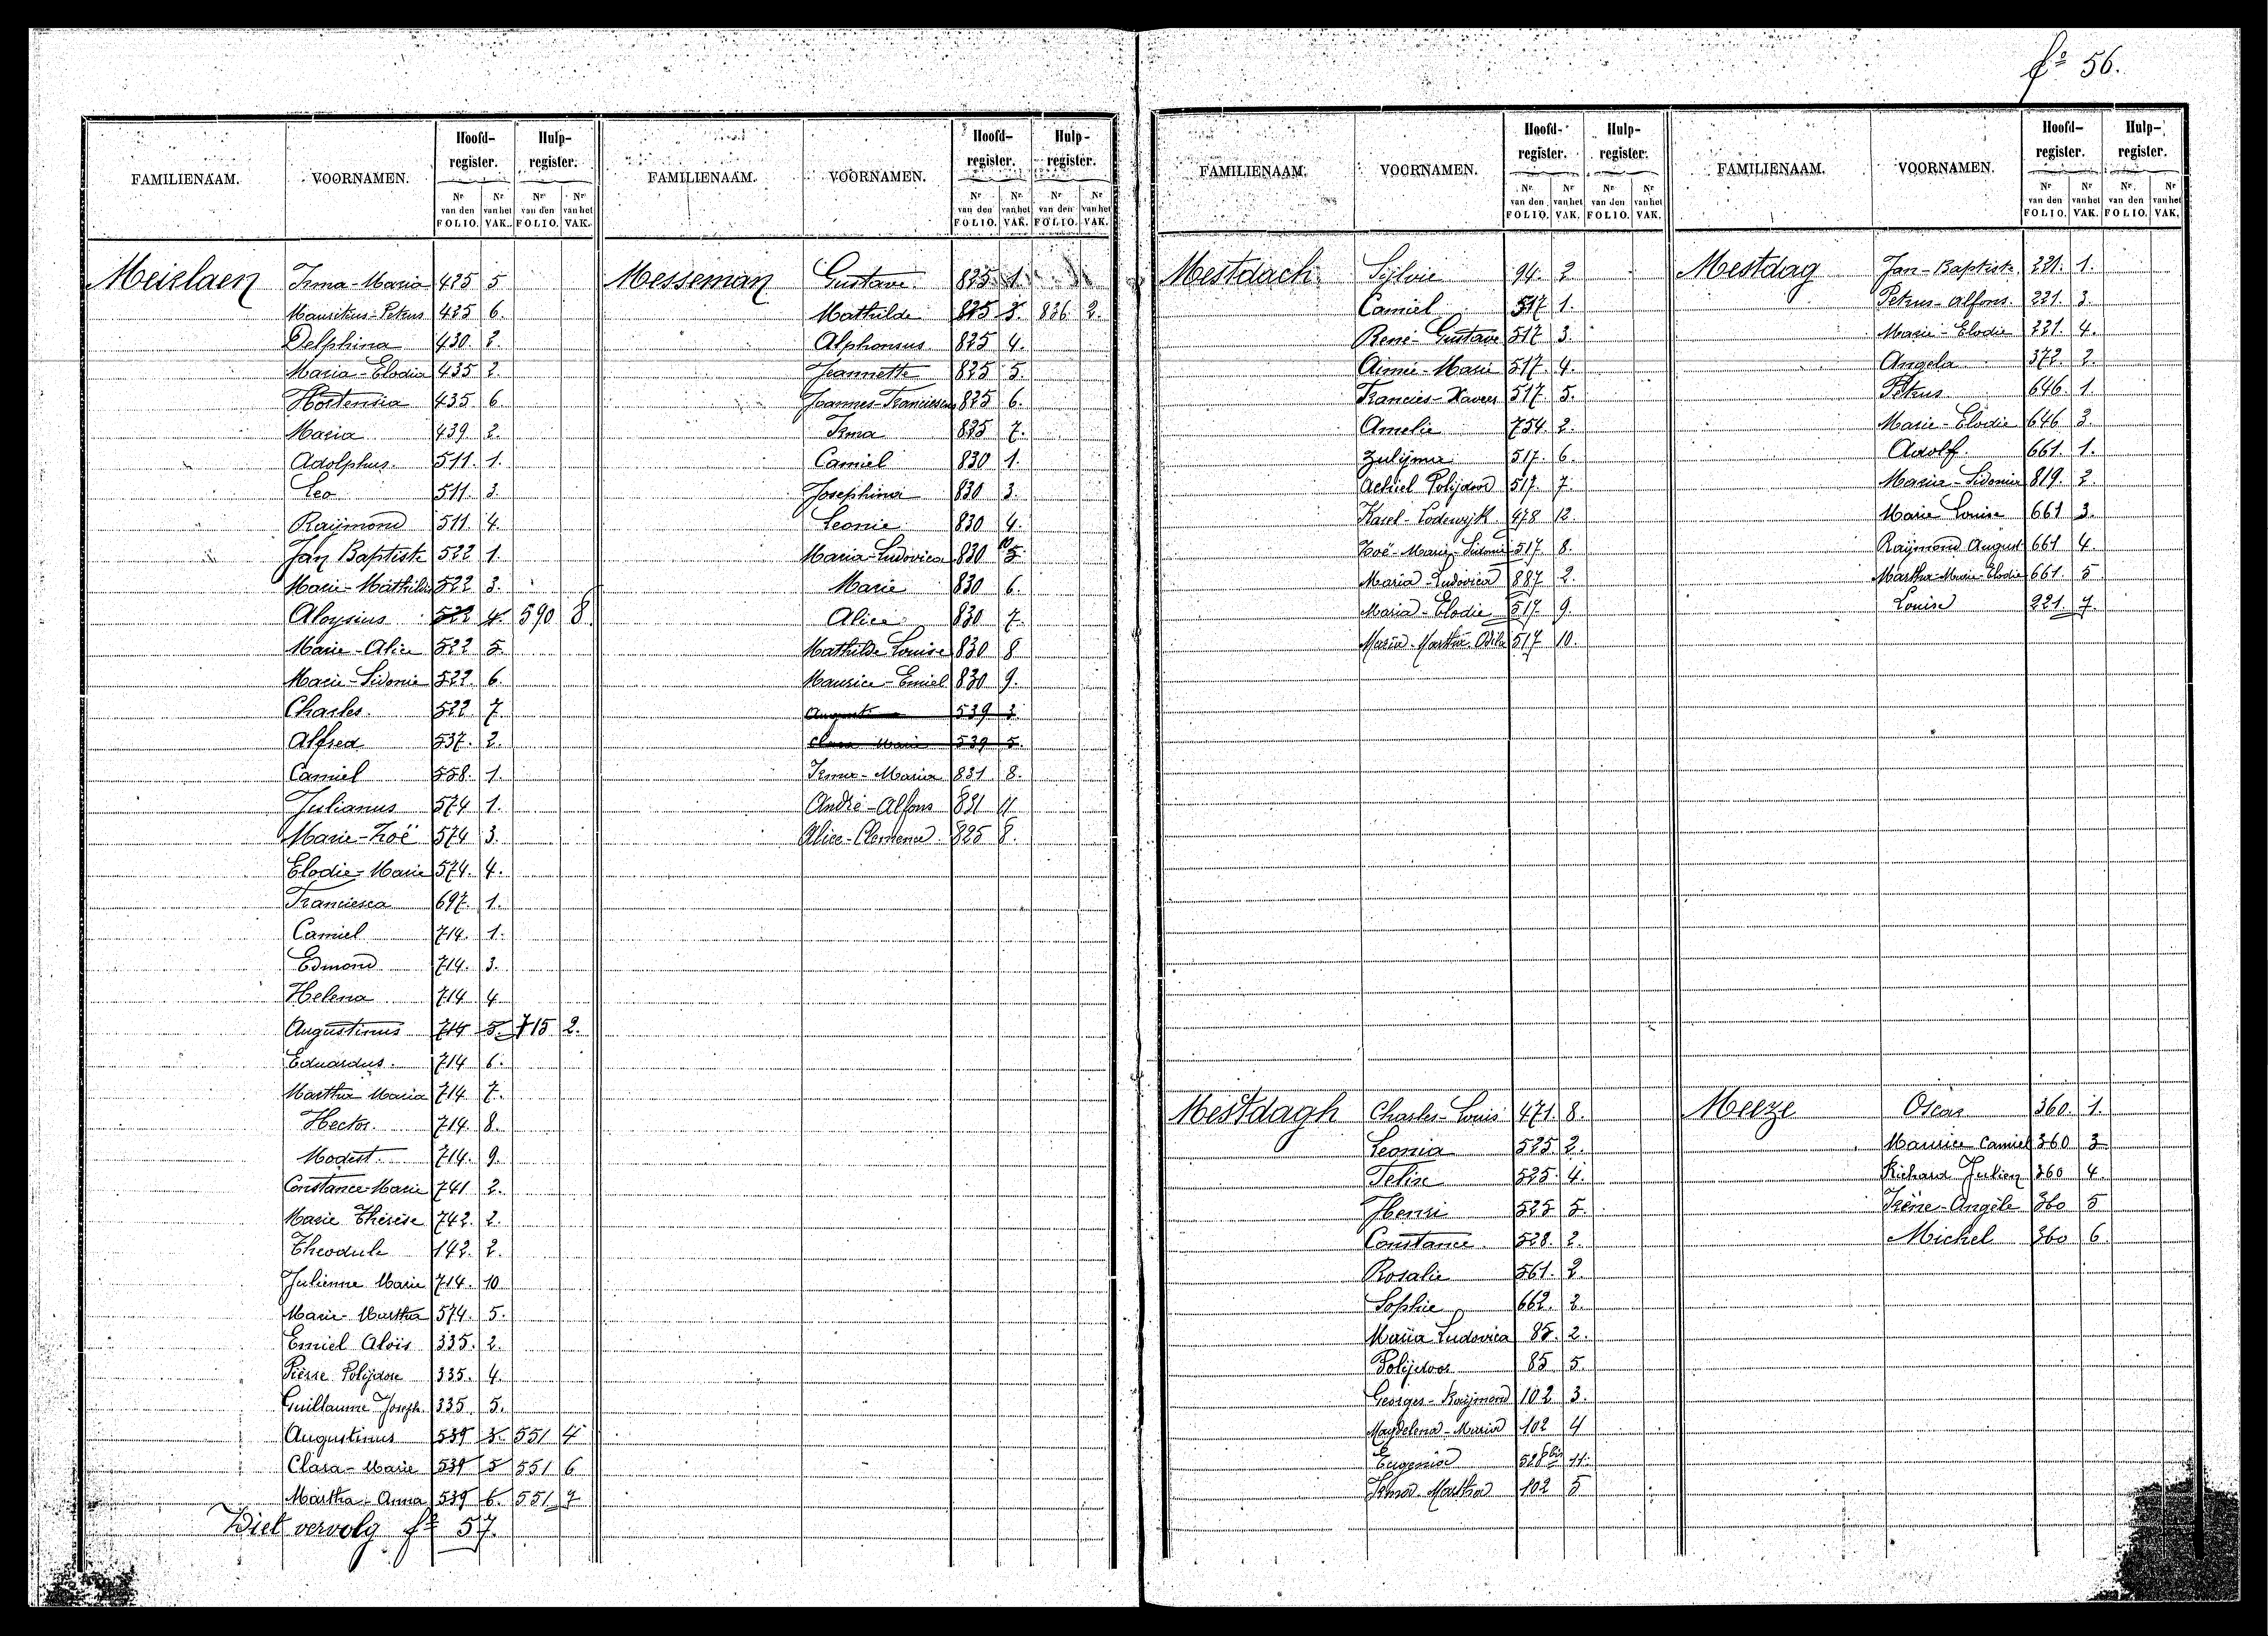 fº 56.
FAMILIENAAM. VOORNAMEN. Hoofd-register. Hulp-register.
Nr van den FOLIO. Nr van het VAK. Nr van den FOLIO. Nr van het VAK.
Meirlaen Irma-Maria 425 5
Mauritius-Petrus 425 6.
Delphina 430. 2.
Maria-Elodia 435 2
Hortensia 435 6.
Maria 439 2.
Adolphus. 511. 1.
Leo 511. 3.
Raijmond 511. 4.
Jan Baptiste 522 1.
Marie-Mathilde 522 3.
Aloysius 522 4. 590 8.
Marie-Alice 522 5.
Marie-Sidonie 522. 6.
Charles. 522 7
Alfred 537. 2.
Camiel 558. 1.
Julianus 574 1.
Marie-Zoë 574 3.
Elodie-Marie 574. 4.
Franciesca 697. 1.
Camiel 714. 1.
Edmond 714. 3.
Helena 714 4
Augustinus 714 5. 715 2.
Eduardus. 714 6.
Martha Maria 714 7.
Hector 714. 8.
Modest. 714. 9.
Constance-Marie 741 2.
Marie Thérèse 742. 2.
Theodule 142. 2.
Julienne Marie 714. 10
Marie-Martha 574. 5.
Emiel Aloïs 335. 2.
Pièrre Polijdore 335. 4.
Guillaume Joseph. 335. 5.
Augustinus 539 3. 551 4
Clara-Marie 539 5 551 6
Martha-Anna 539 6. 551 7
Ziet vervolg fº 57.
FAMILIENAAM. VOORNAMEN. Hoofd-register. Hulp-register.
Nr van den FOLIO. Nr van het VAK. Nr van den FOLIO. Nr van het VAK.
Messeman Gustave 825 1.
Mathilde 825 3. 836 2.
Alphonsus 825 4.
Jeannette 825 5.
Joannes-Franciescus 825 6.
Irma 825 7.
Camiel 830 1.
Josephina 830 3.
Leonie 830 4.
Maria-Ludovica 830 10 5.
Marie 830 6.
Alice 830 7.
Mathilde Louise 830 8
Maurice-Emiel 830 9.
August 539 3
Clara Marie 539 5.
Irma-Maria 831 8.
André-Alfons 831 11
Alice-Clemence 825 8.
FAMILIENAAM. VOORNAMEN. Hoofd-register. Hulp-register.
Nr van den FOLIO. Nr van het VAK. Nr van den FOLIO. Nr van het VAK.
Mestdach Sylvie 94. 2
Camiel 517 1.
René-Gustave 517 3.
Aimé-Marie 517. 4.
Francies-Xaveer 517. 5.
Amelie 754. 2.
Zulijma 517. 6.
Achiel Polijdoor 517. 7.
Karel-Lodewijk 478 12.
Zoë-Marie-Sidonie 517 8.
Maria-Ludovica 887 2.
Maria-Elodie 517. 9.
Maria-Martha-Odila 517 10.
Mestdagh Charles-Louis 471 8.
Leonia 525 2.
Felix 525. 4.
Henri 525 5.
Constance 528. 2.
Rosalie 561. 2.
Sophie 662. 2.
Maria Ludovica 85. 2.
Polijdoor 85 5.
Georges-Raijmond 102 3.
Magdelena-Maria 102 4
Eugenia 528 bis 11.
Irma Martha 102 5
FAMILIENAAM. VOORNAMEN. Hoofd-register. Hulp-register.
Nr van den FOLIO. Nr van het VAK. Nr van den FOLIO. Nr van het VAK.
Mestdag Jan-Baptiste 221. 1.
Petrus-Alfons. 221. 3.
Marie-Elodie 221. 4.
Angela 372. 2.
Petrus 646. 1.
Marie-Elodie 646 3.
Adolf. 661. 1.
Marie-Sidonie 819. 2.
Marie Louise 661 3.
Raijmond August 661 4.
Martha-Marie-Elodie 661. 5
Louise 221. 7.
Meeze Oscar 360. 1.
Maurice Camiel 360 3
Richard Julien 360 4.
Irène-Angèle 360 5
Michel 360 6